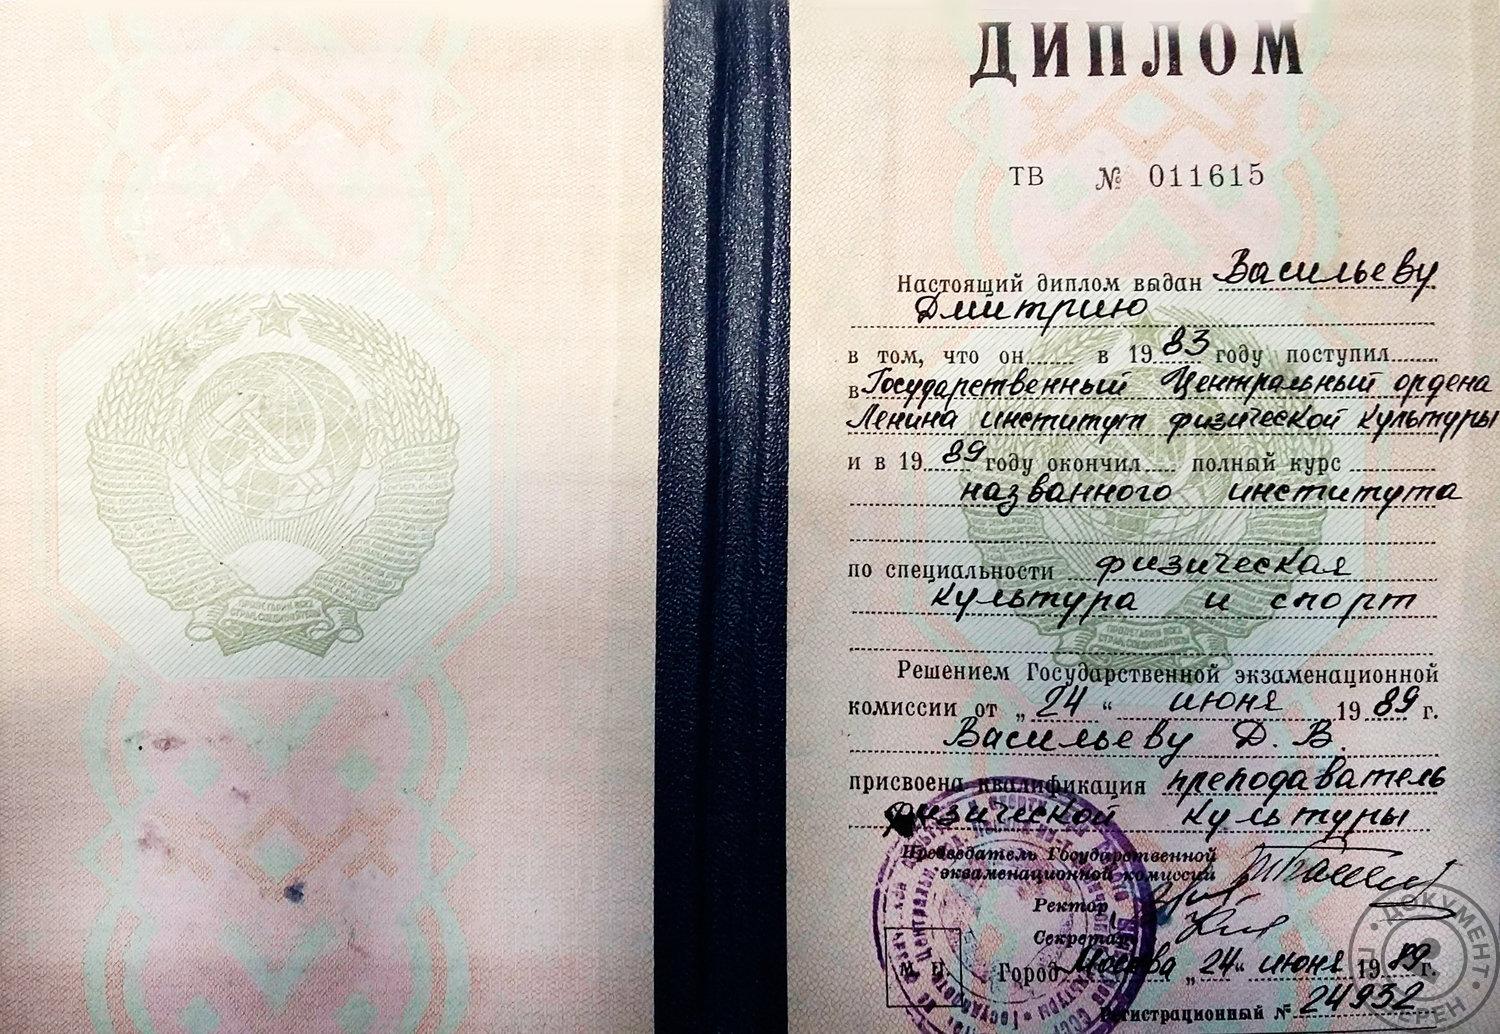 ДИПЛОМ
ТВ № 011615
Настоящий диплом выдан Васильеву
Дмитрию
в том, что он в 1983 году поступил
в Государственный Центральный ордена
Ленина институт физической культуры
и в 1989 году окончил полный курс
названного института
по специальности физическая
культура и спорт
Решением Государственной экзаменационной
комиссии от „24“ июня 1989 г.
Васильеву Д. В.
присвоена квалификация преподаватель
физической культуры
Председатель Государственной
экзаменационной комиссии
Ректор
Секретарь
М. П.
Город Москва „24“ июня 1989 г.
Регистрационный № 24932
ПРОЛЕТАРИИ ВСЕХ
СТРАН, СОЕДИНЯЙТЕСЬ
ПРОЛЕТАРИИ ВСЕХ
СТРАН, СОЕДИНЯЙТЕСЬ
ДОКУМЕНТ